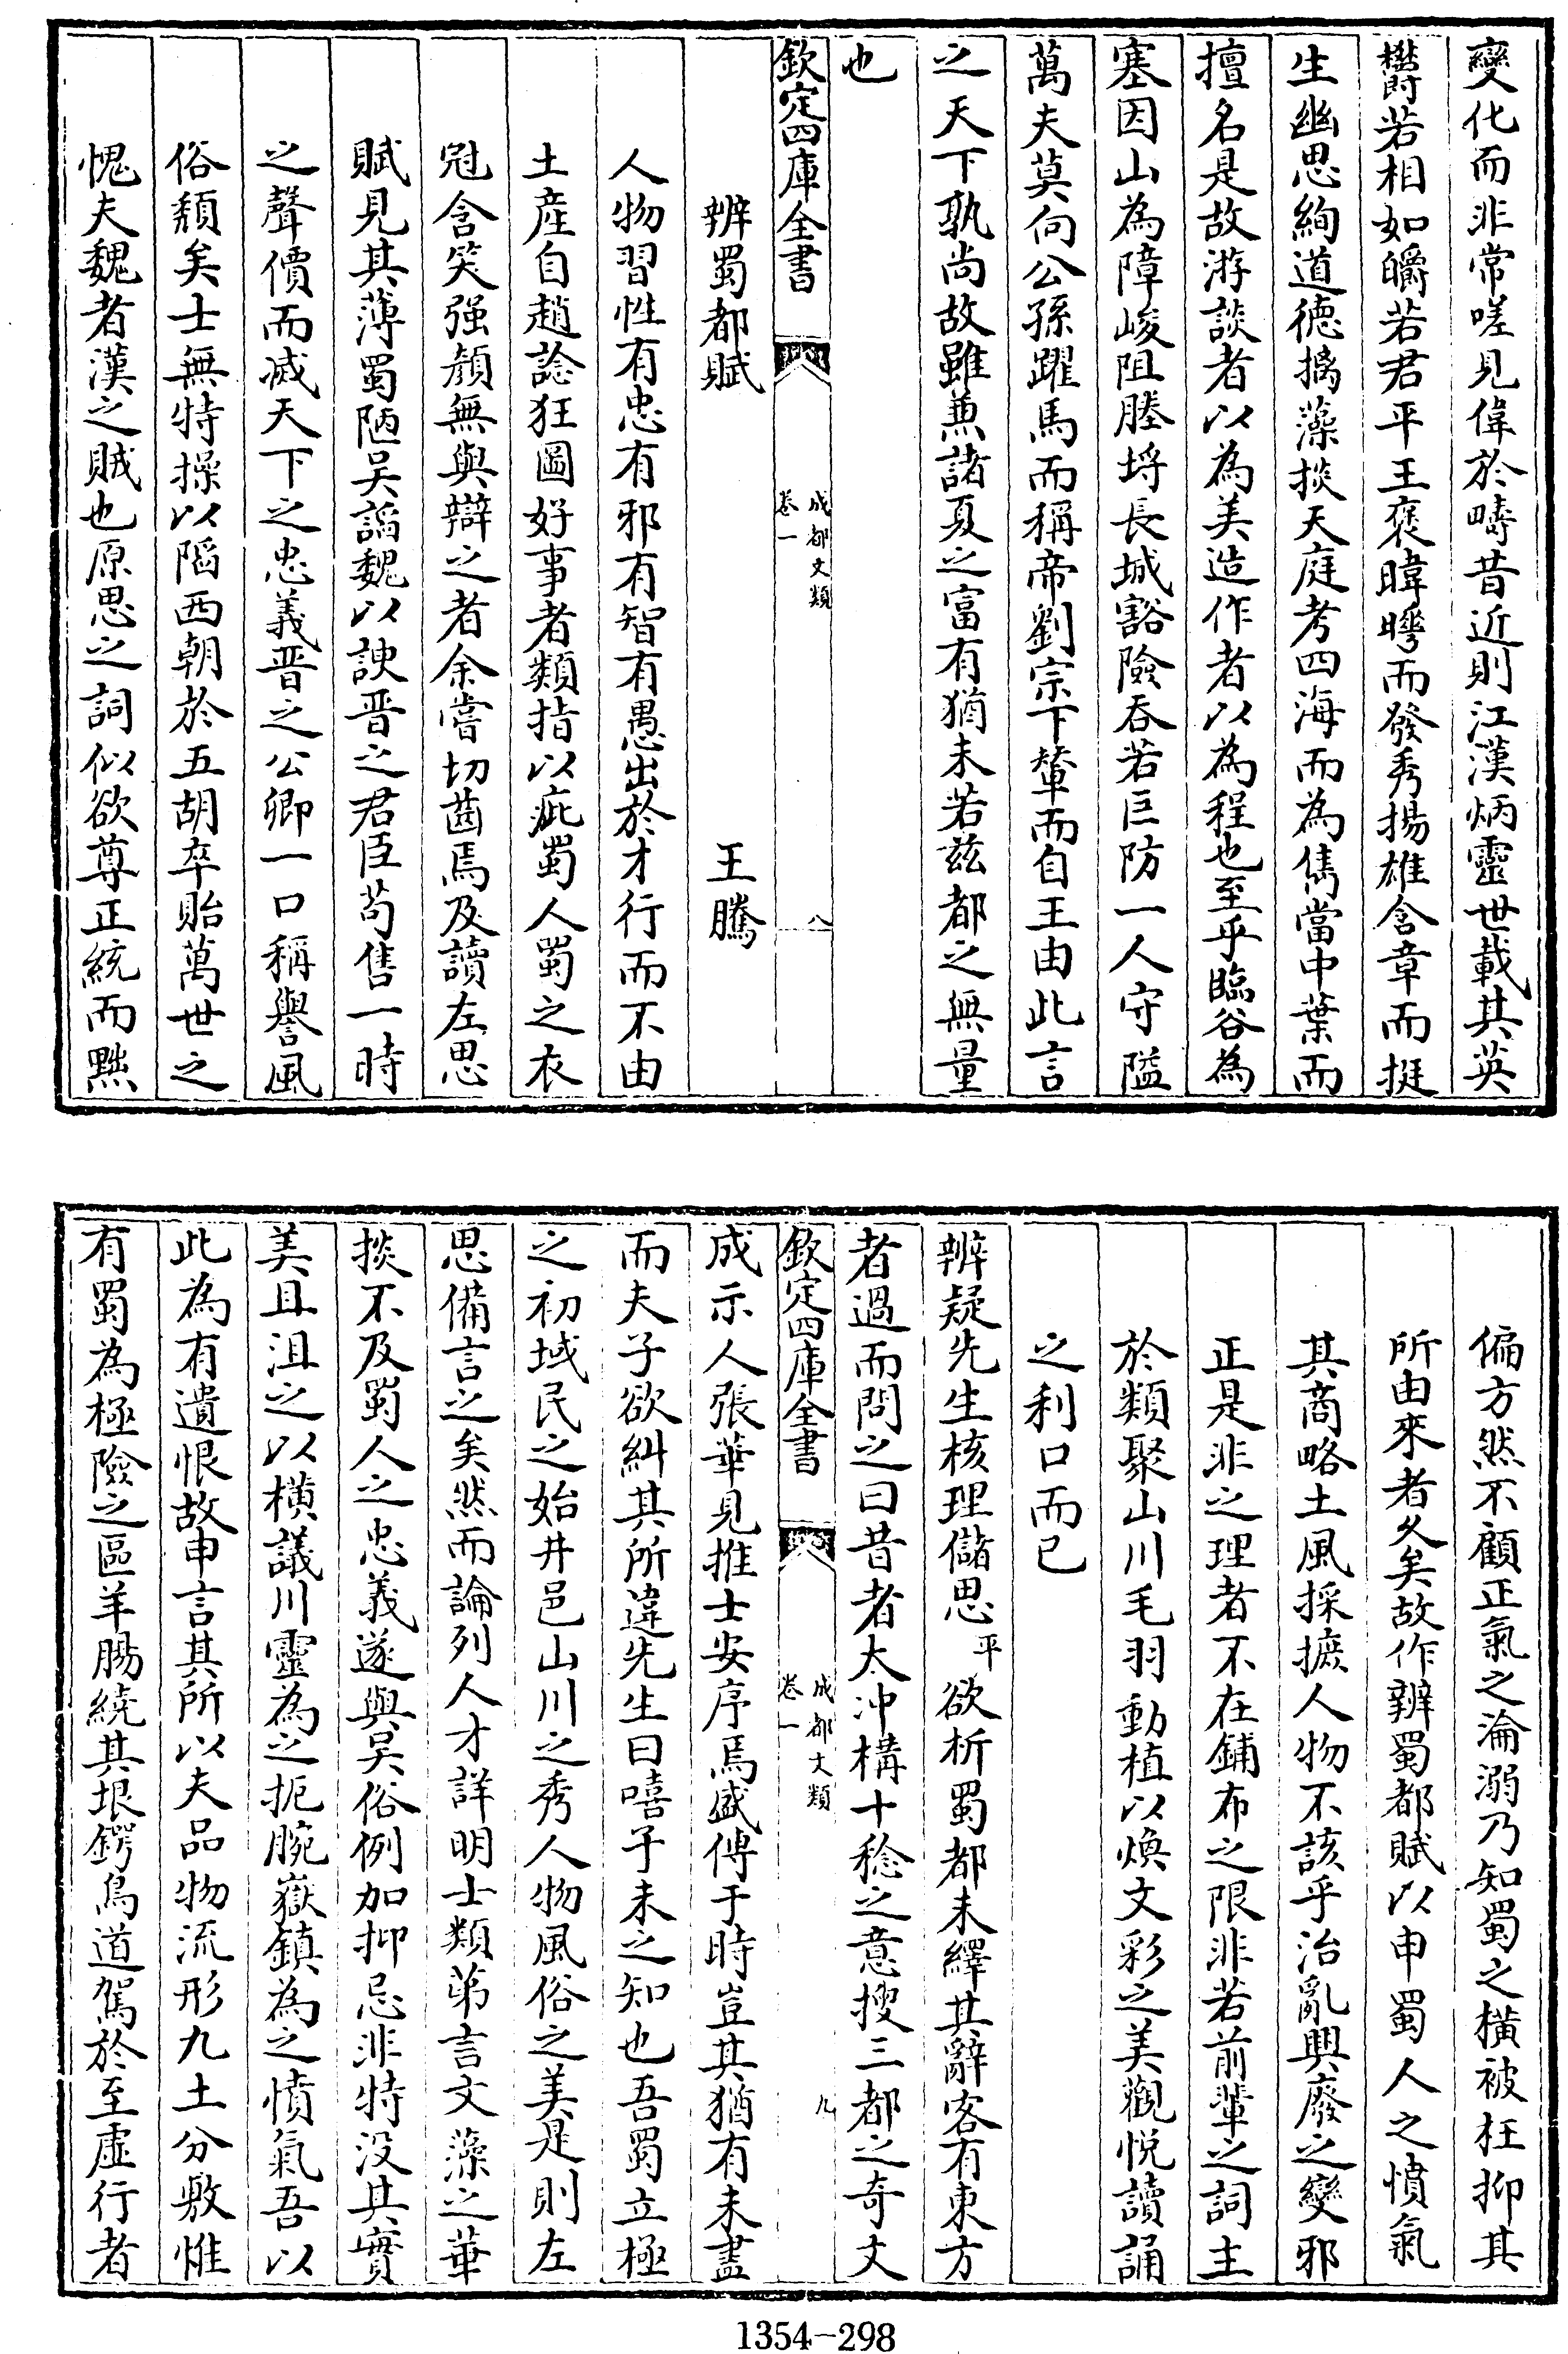 變化而非常嗟見偉於疇昔近則江漢炳靈世載其英
欝若相如皭若君平王褒暐曄而發秀揚雄含章而挺
生幽思絢道德摛藻掞天庭考四海而為儁當中葉而
擅名是故游談者以為美造作者以為程也至乎臨谷為
塞因山為障峻阻塍埒長城豁險吞若巨防一人守隘
萬夫莫向公孫躍馬而稱帝劉宗下輦而自王由此言
之天下孰尚故雖兼諸夏之富有猶未若茲都之無量
也
欽定四庫全書
成都文類
卷一
八
辨蜀都賦
王騰
人物習性有忠有邪有智有愚出於才行而不由
土產自趙諗狂圖好事者類指以疵蜀人蜀之衣
冠含笑强顔無與辯之者余嘗切齒焉及讀左思
賦見其薄蜀陋吳謟魏以諛晋之君臣苟售一時
之聲價而滅天下之忠義晋之公卿一口稱譽風
俗頽矣士無特操以䧟西朝於五胡卒貽萬世之
愧夫魏者漢之賊也原思之詞似欲尊正統而黜
偏方然不顧正氣之淪溺乃知蜀之橫被枉抑其
所由來者久矣故作辨蜀都賦以申蜀人之憤氣
其商略土風採摭人物不該乎治亂興廢之變邪
正是非之理者不在鋪布之限非若前輩之詞主
於類聚山川毛羽動植以煥文彩之美觀悅讀誦
之利口而已
辨疑先生核理儲思平欲析蜀都未繹其辭客有東方
者過而問之曰昔者太冲構十稔之意搜三都之奇文
欽定四庫全書
成都文類
卷一
九
成示人張華見推士安序焉盛傳于時豈其猶有未盡
而夫子欲糾其所違先生曰嘻子未之知也吾蜀立極
之初域民之始井邑山川之秀人物風俗之美是則左
思備言之矣然而論列人才詳明士類第言文藻之華
掞不及蜀人之忠義遂與吳俗例加抑忌非特没其實
美且沮之以橫議川靈為之扼腕嶽鎮為之憤氣吾以
此為有遺恨故申言其所以夫品物流形九土分敷惟
有蜀為極險之區羊腸繞其垠鍔鳥道駕於至虛行者
1354-298